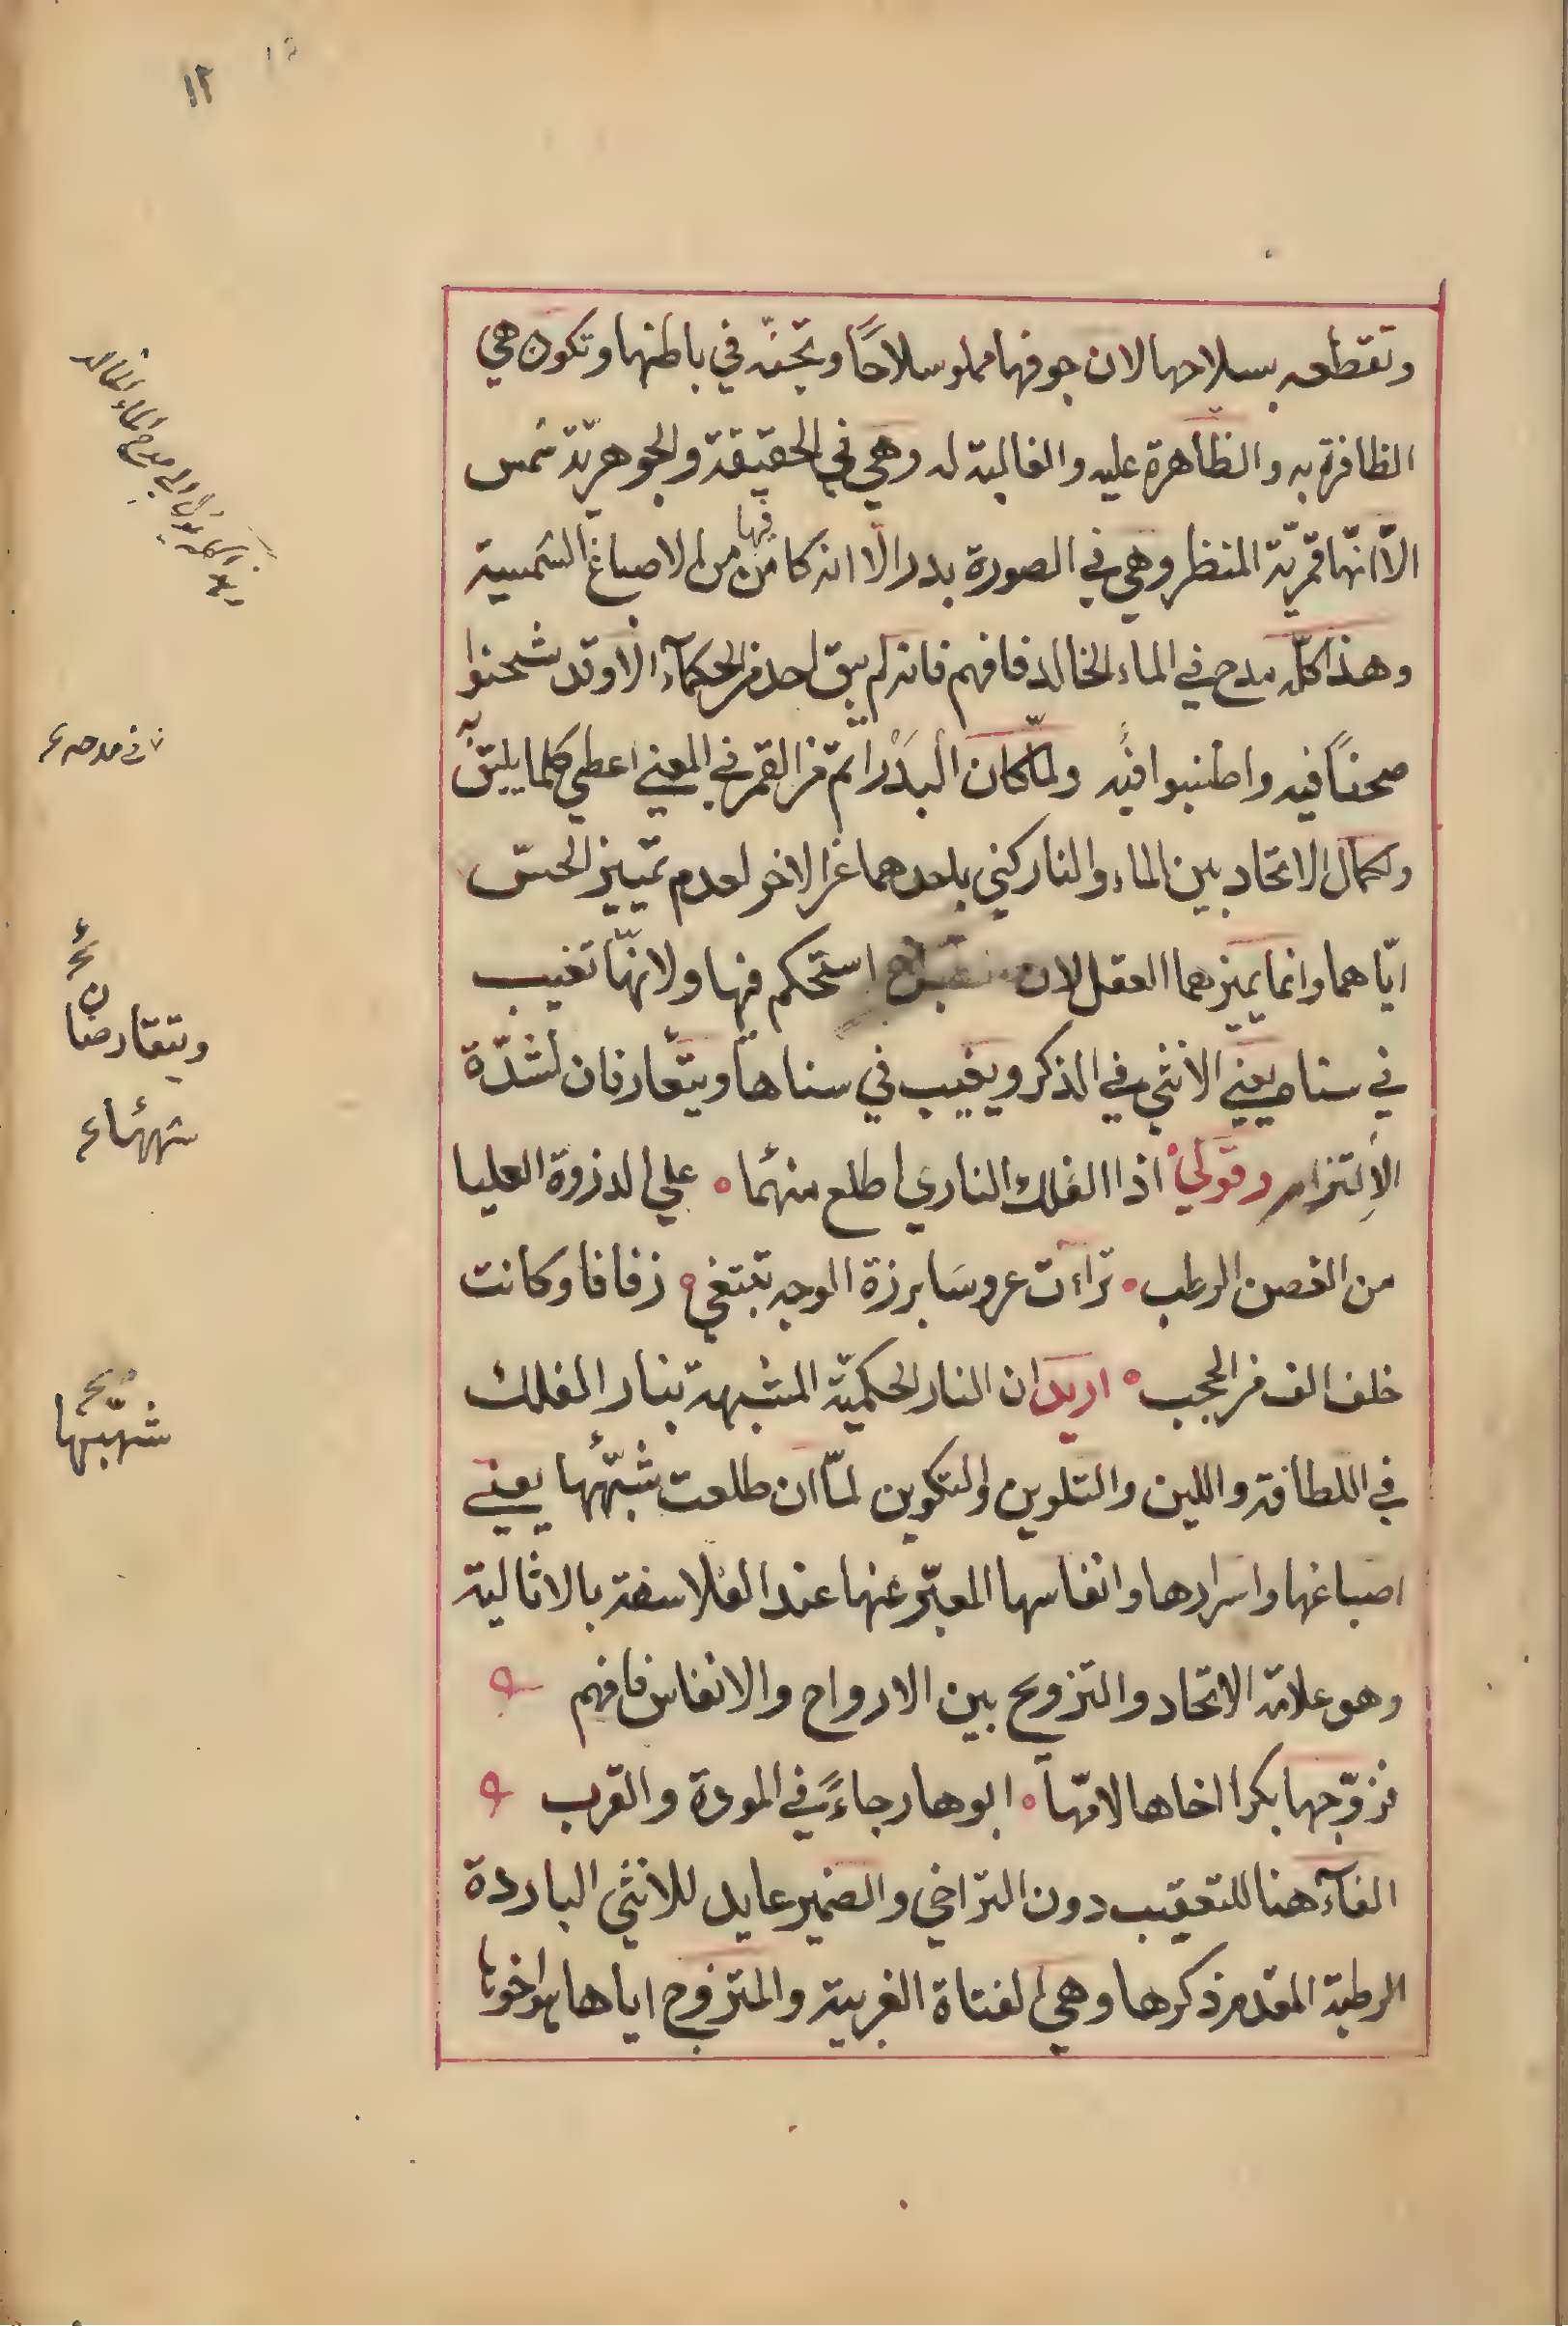 ١٢
وتقطعه بسلاحها لان جوفها مملو سلاحًا وتجنّه في باطنها وتكون هي
الظافرة به والظاهرة عليه والغالبة له وهي في الحقيقة والجوهريّة شمس
الّا انّها قمريّة المنظر وهي في الصورة بدر الّا انه كامن فيها من الاصباغ الشمسية
وهذا كلّه مدح في الماء الخالد فافهم فانه لم يبق احد من الحكمآء الا وقد شحنوا
صحفًا فيه واطنبوا فيه ولمّا كان البَدْر اتم من القمر في المعني اعطي كلما يليق به
ولكمال الاتحاد بين الماء والنار كني باحدهما عن الاخر لعدم تمييز الحسّ
ايّاهما وانما يميزهما العقل لان استحكم فيها ولانهّا تغيب
في سناه يعني الانثي في الذكر ويغيب في سناها ويتعارفان لشدّة
الاِلتزام وقولي اذا الفلك الناري اطلع منهما ° علي الذروة العليا
من الغصن الرطب ° تراءت عروسَا برزة الوجه تبتغي ° زفافا وكانت
خلف الف من الحجب ° اريد ان النار الحكميّة المشبهة بنار الفلك
في اللطافة واللين والتلوين والتكوين لمّا ان طلعت شبّهها يعني
اصباغها واسرارها وانفاسها المعبّر عنها عند الفلاسفة بالاثالية
وهو علامة الاتحاد والتزويج بين الارواح والانفاس فافهم
فزوّجها بكرا اخاها لامّها ° ابوها رجاءً في المودة والقرب
الفآء هنا للتعقيب دون التراخي والضمير عايد للانثي الباردة
الرطبة المقدم ذكرها وهي الفتاة الغربية والمتزوج اياها هو اخوها
في مدحه
ويتقارضان
شهّبها